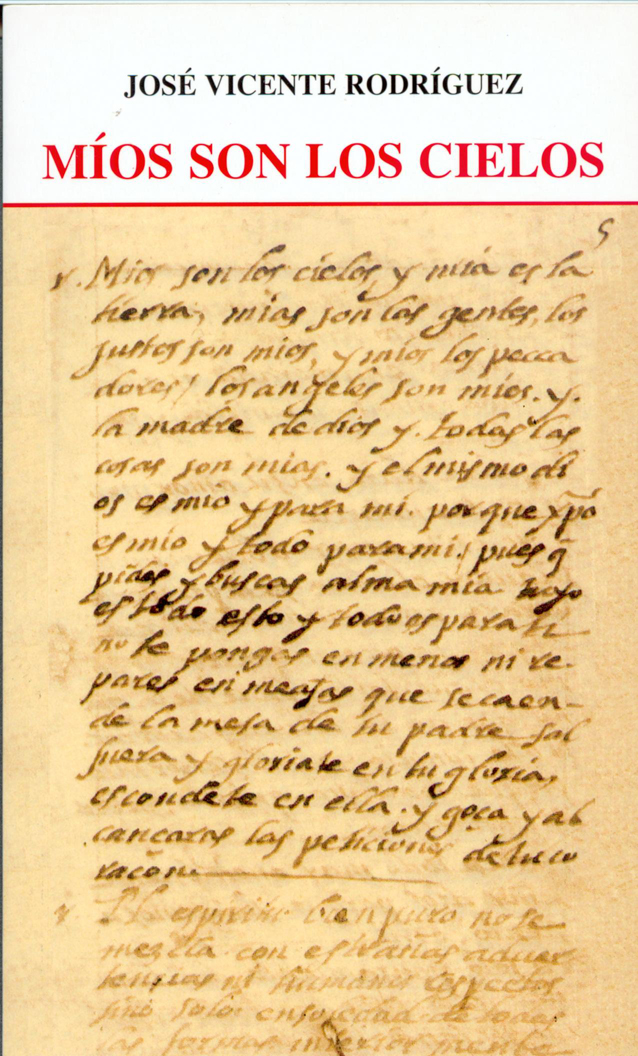 JOSÉ VICENTE RODRÍGUEZ
MÍOS SON LOS CIELOS
5
Mios son los cielos, y mia es la
tierra, mias son las gentes, los
justos son mios, y mios los pecca
dores, los angeles son mios. y.
la madre de dios y. todas las
cosas son mias. y el mismo di
os es mio y para mi. porque xpõ
es mio y todo para mi. pues q̃
pides y buscas alma mia tuyo
es todo esto y todo es para ti
no te pongas en menos ni re-
pares en meajas que se caen-
de la mesa de tu padre sal
fuera y gloriate en tu gloria,
escondete en ella. y goça y al
cançaras las peticiones de tu co
raçon.
El espiritu bien puro no se
mezcla con estrañas adver
tencias ni humanos respectos
sino solo en soledad de todas
las formas